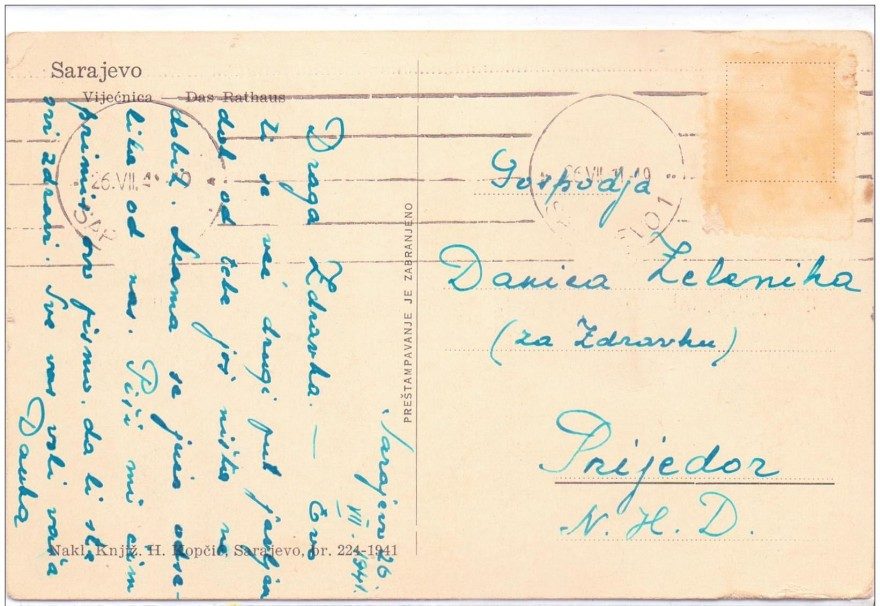 Sarajevo
Vijećnica — Das Rathaus
Sarajevo 26
VII. 1941.
Draga Zdravka. — Evo
ti se već drugi put javljam
dok od tebe još ništa ne
dobih. Mama se juče odse-
lila od nas. Piši mi čim
primiš ovo pismo, da li ste
svi zdravi. Sve vas voli vaša
Danka
Nakl. Knjiž. H. Kopčić, Sarajevo, br. 224-1941
PREŠTAMPAVANJE JE ZABRANJENO
26.VII.
Gospodja
Danica Zelenika
(za Zdravku)
Prijedor
N. H. D.